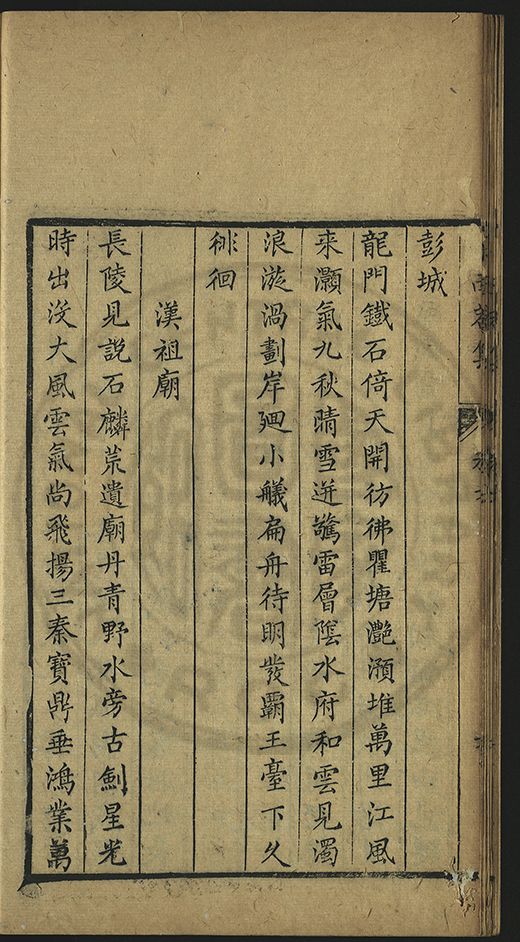 彭城
龍門鐵石倚天開彷彿瞿塘灩澦堆萬里江風
来灝氣九秋晴雪迸驚雷層陰水府和雲見濁
浪漩渦劃岸廻小艤扁舟待明發霸王臺下久
徘徊
漢祖廟
長陵見說石麟荒遺廟丹青野水旁古劍星光
時出没大風雲氣尚飛揚三秦寶鼎垂鴻業萬